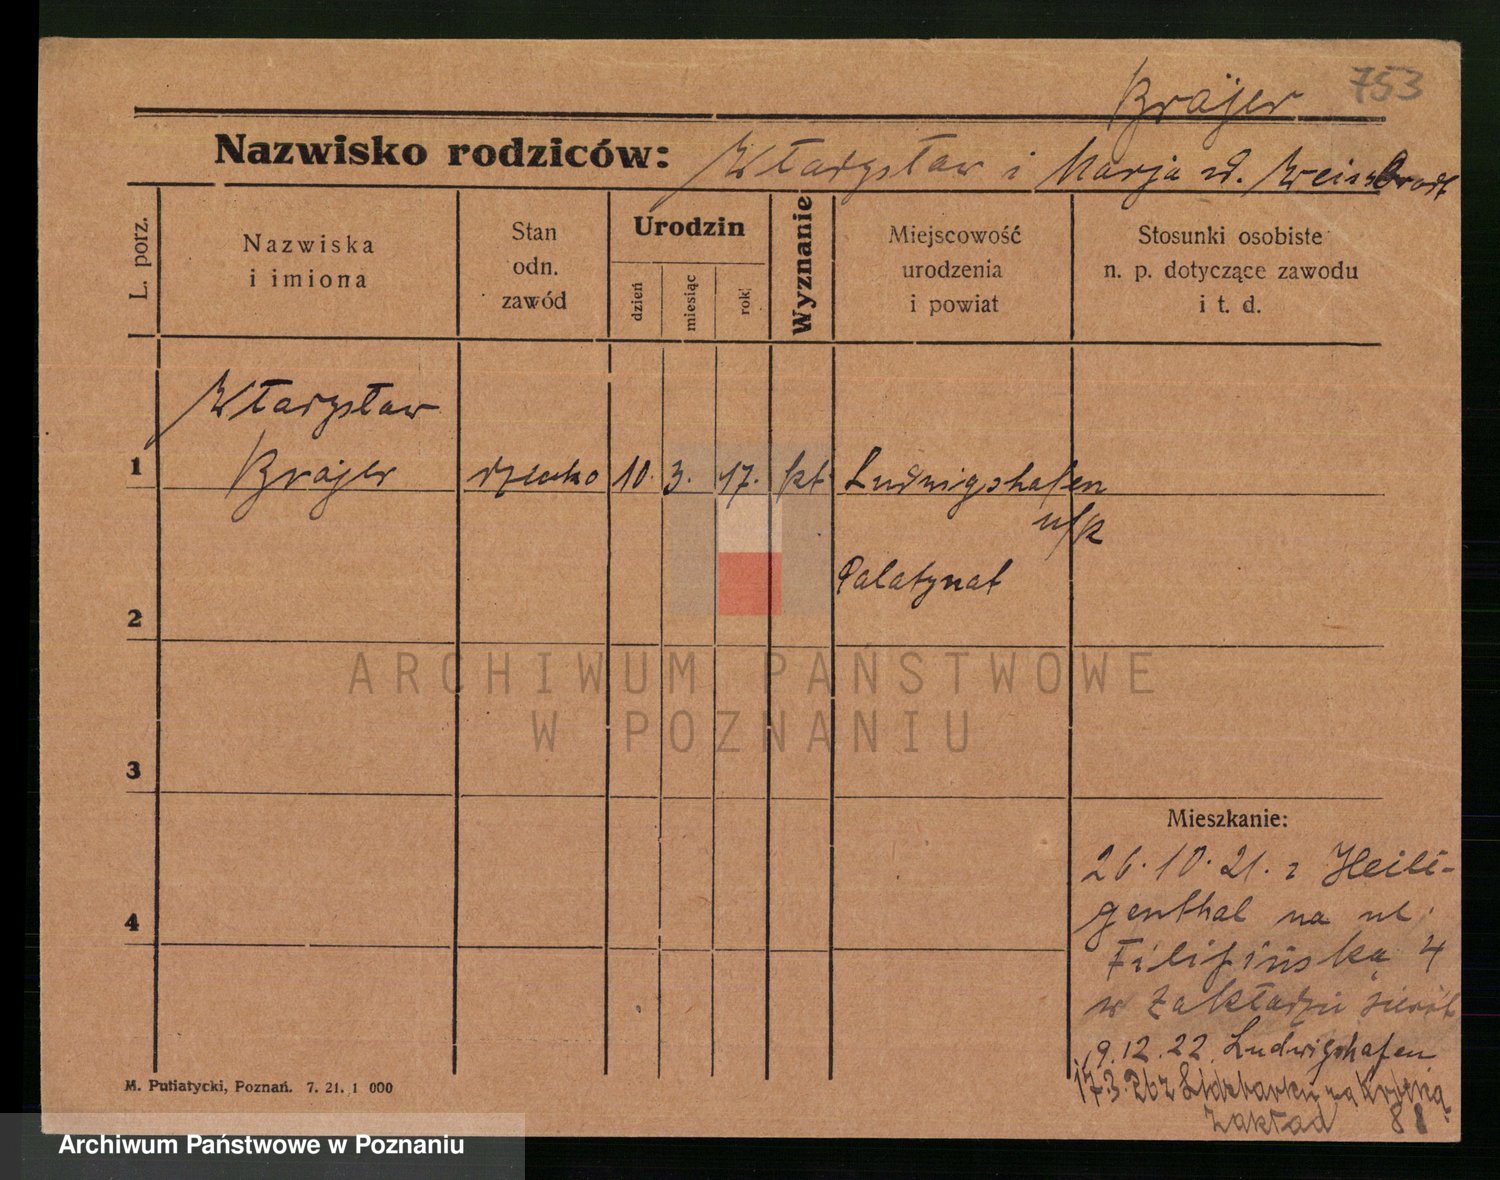 753
Brajer
Nazwisko rodziców: Władysław i Marja
L. porz.
Nazwiska
i imiona
Stan
odn.
zawód
Urodzin
dzień
miesiąc
rok
Wyznanie
Miejscowość
urodzenia
i powiat
Stosunki osobiste
n. p. dotyczące zawodu
i t. d.
Władysław
1 Brajer dziecko 10. 3. 17. kt. Ludwigshafen
Palatynat
2
ARCHIWUM PAŃSTWOWE
W POZNANIU
3
Mieszkanie:
26.10.21. z Heili-
4
genthal na ul.
Filipińska 4
w Zakładzie sierót
9.12.22. Ludwigshafen
17.3.26 z
Zakład
M. Putiatycki, Poznań. 7. 21. 1 000
Archiwum Państwowe w Poznaniu